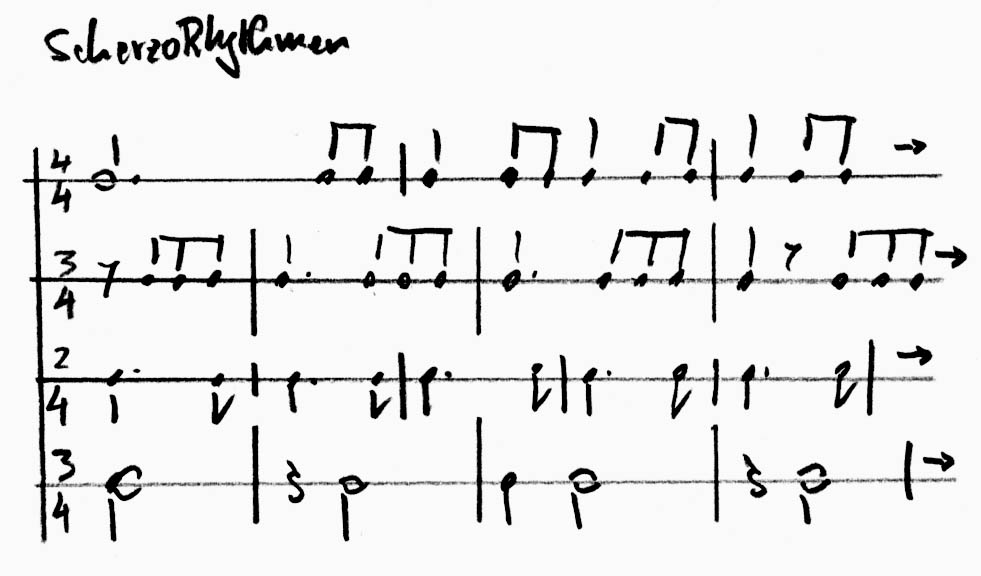 ScherzoRhythmen
4
4
3
4
2
4
3
4